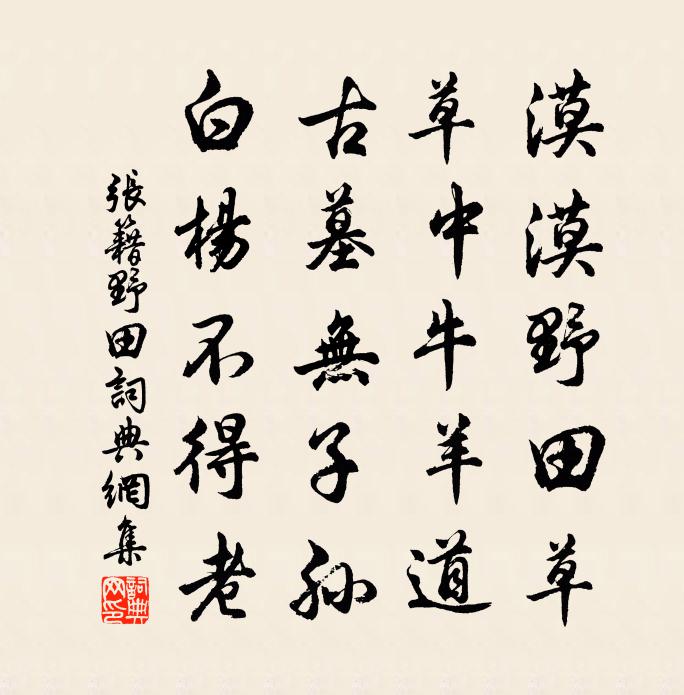 漠漠野田草
草中牛羊道
古墓無子孫
白楊不得老
張籍野田詞典網集
詞典網印